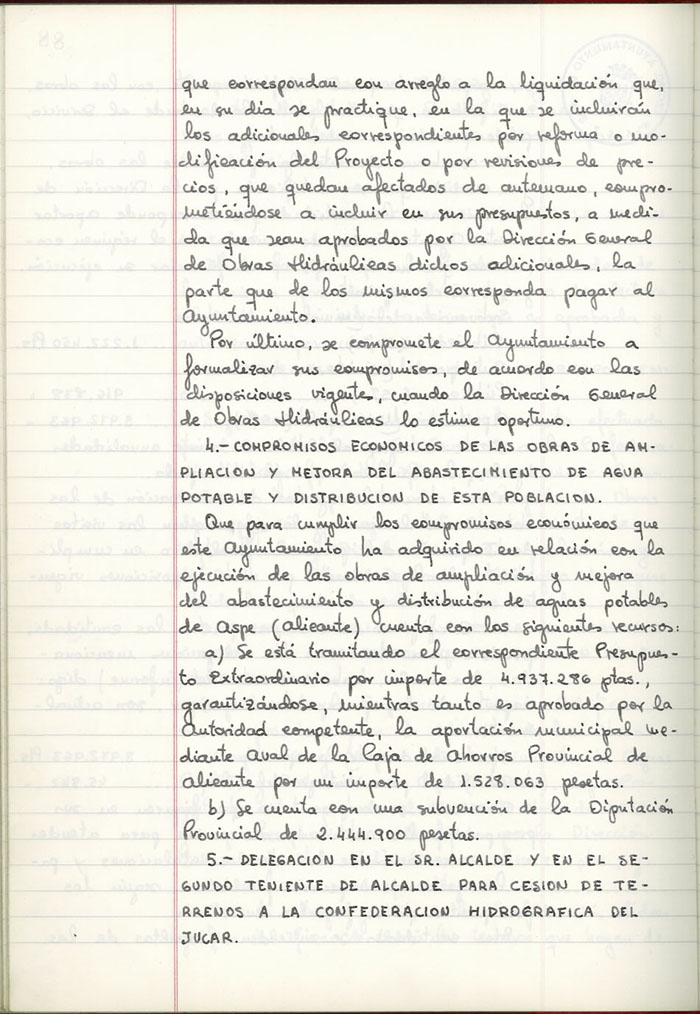 que correspondan con arreglo a la liquidación que,
en su día se practique, en la que se incluirán
los adicionales correspondientes por reforma o mo-
dificación del Proyecto o por revisiones de pre-
cios, que quedan afectados de antemano, compro-
metiéndose a incluir en sus presupuestos, a medi-
da que sean aprobados por la Dirección General
de Obras Hidráulicas dichos adicionales, la
parte que de los mismos corresponda pagar al
Ayuntamiento.
Por último, se compromete el Ayuntamiento a
formalizar sus compromisos, de acuerdo con las
disposiciones vigentes, cuando la Dirección General
de Obras Hidráulicas lo estime oportuno.
4.- COMPROMISOS ECONOMICOS DE LAS OBRAS DE AM-
PLIACION Y MEJORA DEL ABASTECIMIENTO DE AGUA
POTABLE Y DISTRIBUCION DE ESTA POBLACION.
Que para cumplir los compromisos económicos que
este Ayuntamiento ha adquirido en relación con la
ejecución de las obras de ampliación y mejora
del abastecimiento y distribución de aguas potables
de Aspe (Alicante) cuenta con los siguientes recursos:
a) Se está tramitando el correspondiente Presupues-
to Extraordinario por importe de 4.937.286 ptas.,
garantizándose, mientras tanto es aprobado por la
Autoridad competente, la aportación municipal me-
diante Aval de la Caja de Ahorros Provincial de
Alicante por un importe de 1.528.063 pesetas.
b) Se cuenta con una subvención de la Diputación
Provincial de 2.444.900 pesetas.
5.- DELEGACION EN EL SR. ALCALDE Y EN EL SE-
GUNDO TENIENTE DE ALCALDE PARA CESION DE TE-
RRENOS A LA CONFEDERACION HIDROGRAFICA DEL
JUCAR.